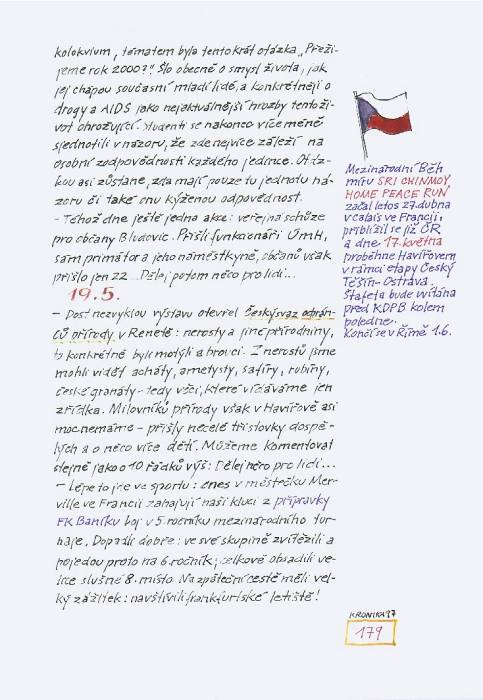 kolokvium, tématem byla tentokrát otázka „Přeži-
jeme rok 2000?". Šlo obecně o smysl života, jak
jej chápou současní mladí lidé, a konkrétněji o
drogy a AIDS jako nejaktuálnější hrozby tento ži-
vot ohrožující. Studenti se nakonec více méně
sjednotili v názoru, že zde nejvíce záleží na
osobní zodpovědnosti každého jedince. Otáz-
kou asi zůstane, zda mají pouze tu jednotu ná-
zoru či také onu kýženou odpovědnost.
- Téhož dne ještě jedna akce: veřejná schůze
pro občany Bludovic. Přišli funkcionáři ÚMH,
sám primátor a jeho náměstkyně, občanů však
přišlo jen 22... Dělej potom něco pro lidi...
19.5.
- Dost nezvyklou výstavu otevřel Český svaz ochrán-
ců přírody v Renetě: nerosty a jiné přírodniny,
to konkrétně byli motýli a brouci. Z nerostů jsme
mohli vidět acháty, ametysty, safíry, rubíny,
české granáty - tedy věci, které vídáváme jen
zřídka. Milovníků přírody však v Havířově asi
moc nemáme - přišly necelé tři stovky dospě-
lých a o něco více dětí. Můžeme komentovat
stejně jako o 10 řádků výš: Dělej něco pro lidi...
- Lépe to jde ve sportu: dnes v městečku Mer-
ville ve Francii zahajují naši kluci z přípravky
FK Baníku boj v 5. ročníku mezinárodního tur-
naje. Dopadli dobře: ve své skupině zvítězili a
pojedou proto na 6. ročník; celkově obsadili ve-
lice slušné 8. místo. Na zpáteční cestě měli vel-
ký zážitek: navštívili frankfurtské letiště!
Mezinárodní Běh
míru SRI CHINMOY
HOME PEACE RUN
začal letos 27. dubna
v Calais ve Francii,
přiblížil se již ČR
a dne 17. května
proběhne Havířovem
v rámci etapy Český
Těšín-Ostrava.
Štafeta bude vítána
před KDPB kolem
poledne.
Končí v Římě 1.6.
KRONIKA'97
179